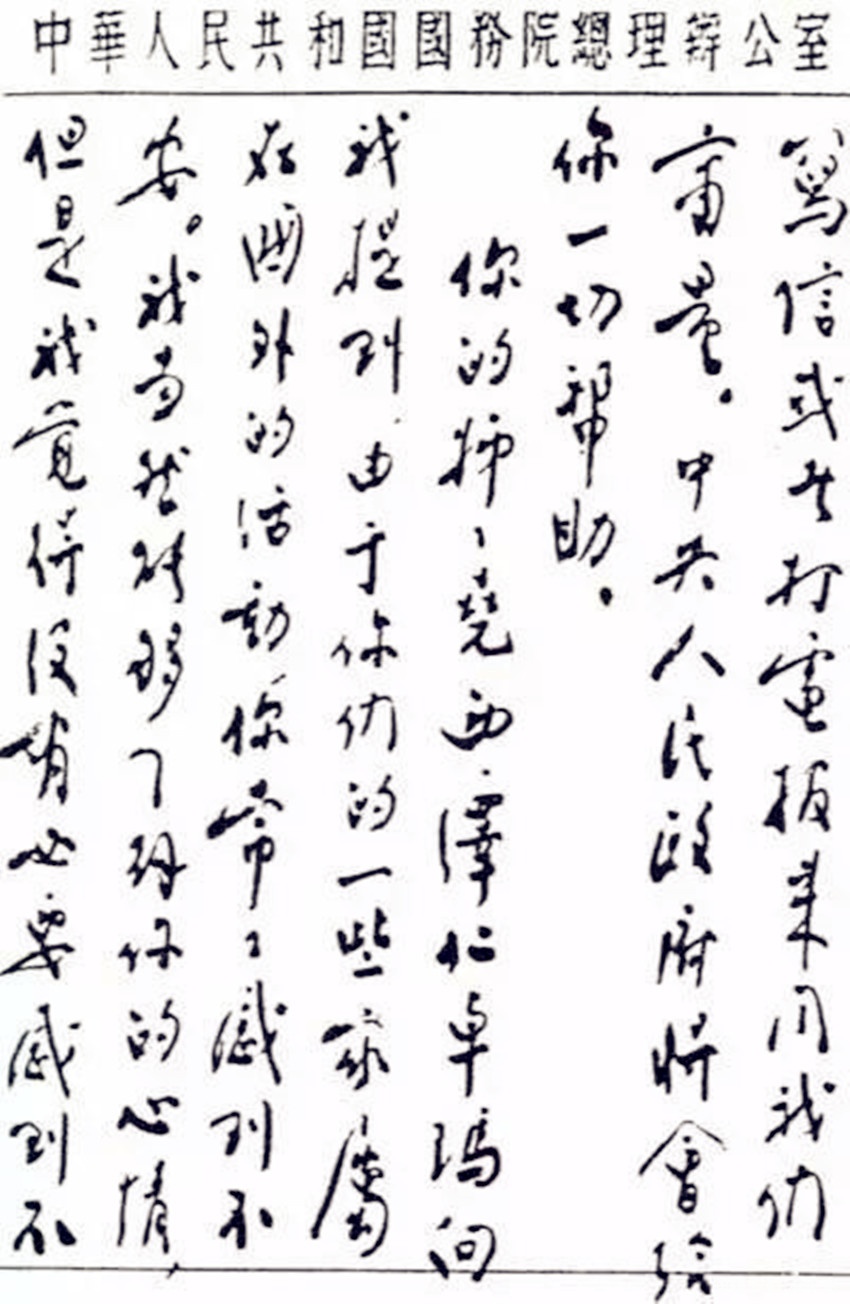 中華人民共和國國務院總理辦公室
寫信或者打電报来同我们
商量。中央人民政府將會给
你一切帮助。
你的姊々堯西澤仁卓瑪向
我提到由于你们的一些亲屬
在國外的活動你常々感到不
安。我当然能夠了解你的心情,
但是我覺得没有必要感到不